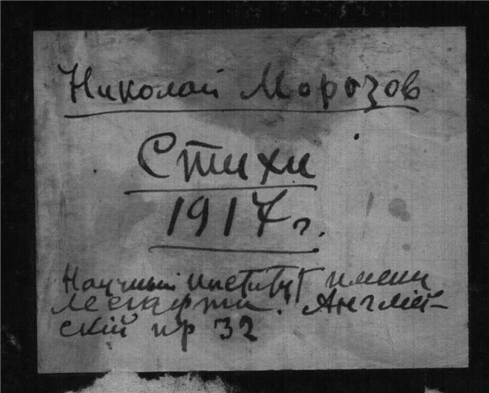 Николай Морозов
Стихи
1917 г.
Научный институт имени
Лесгафта. Англій-
скій пр 32